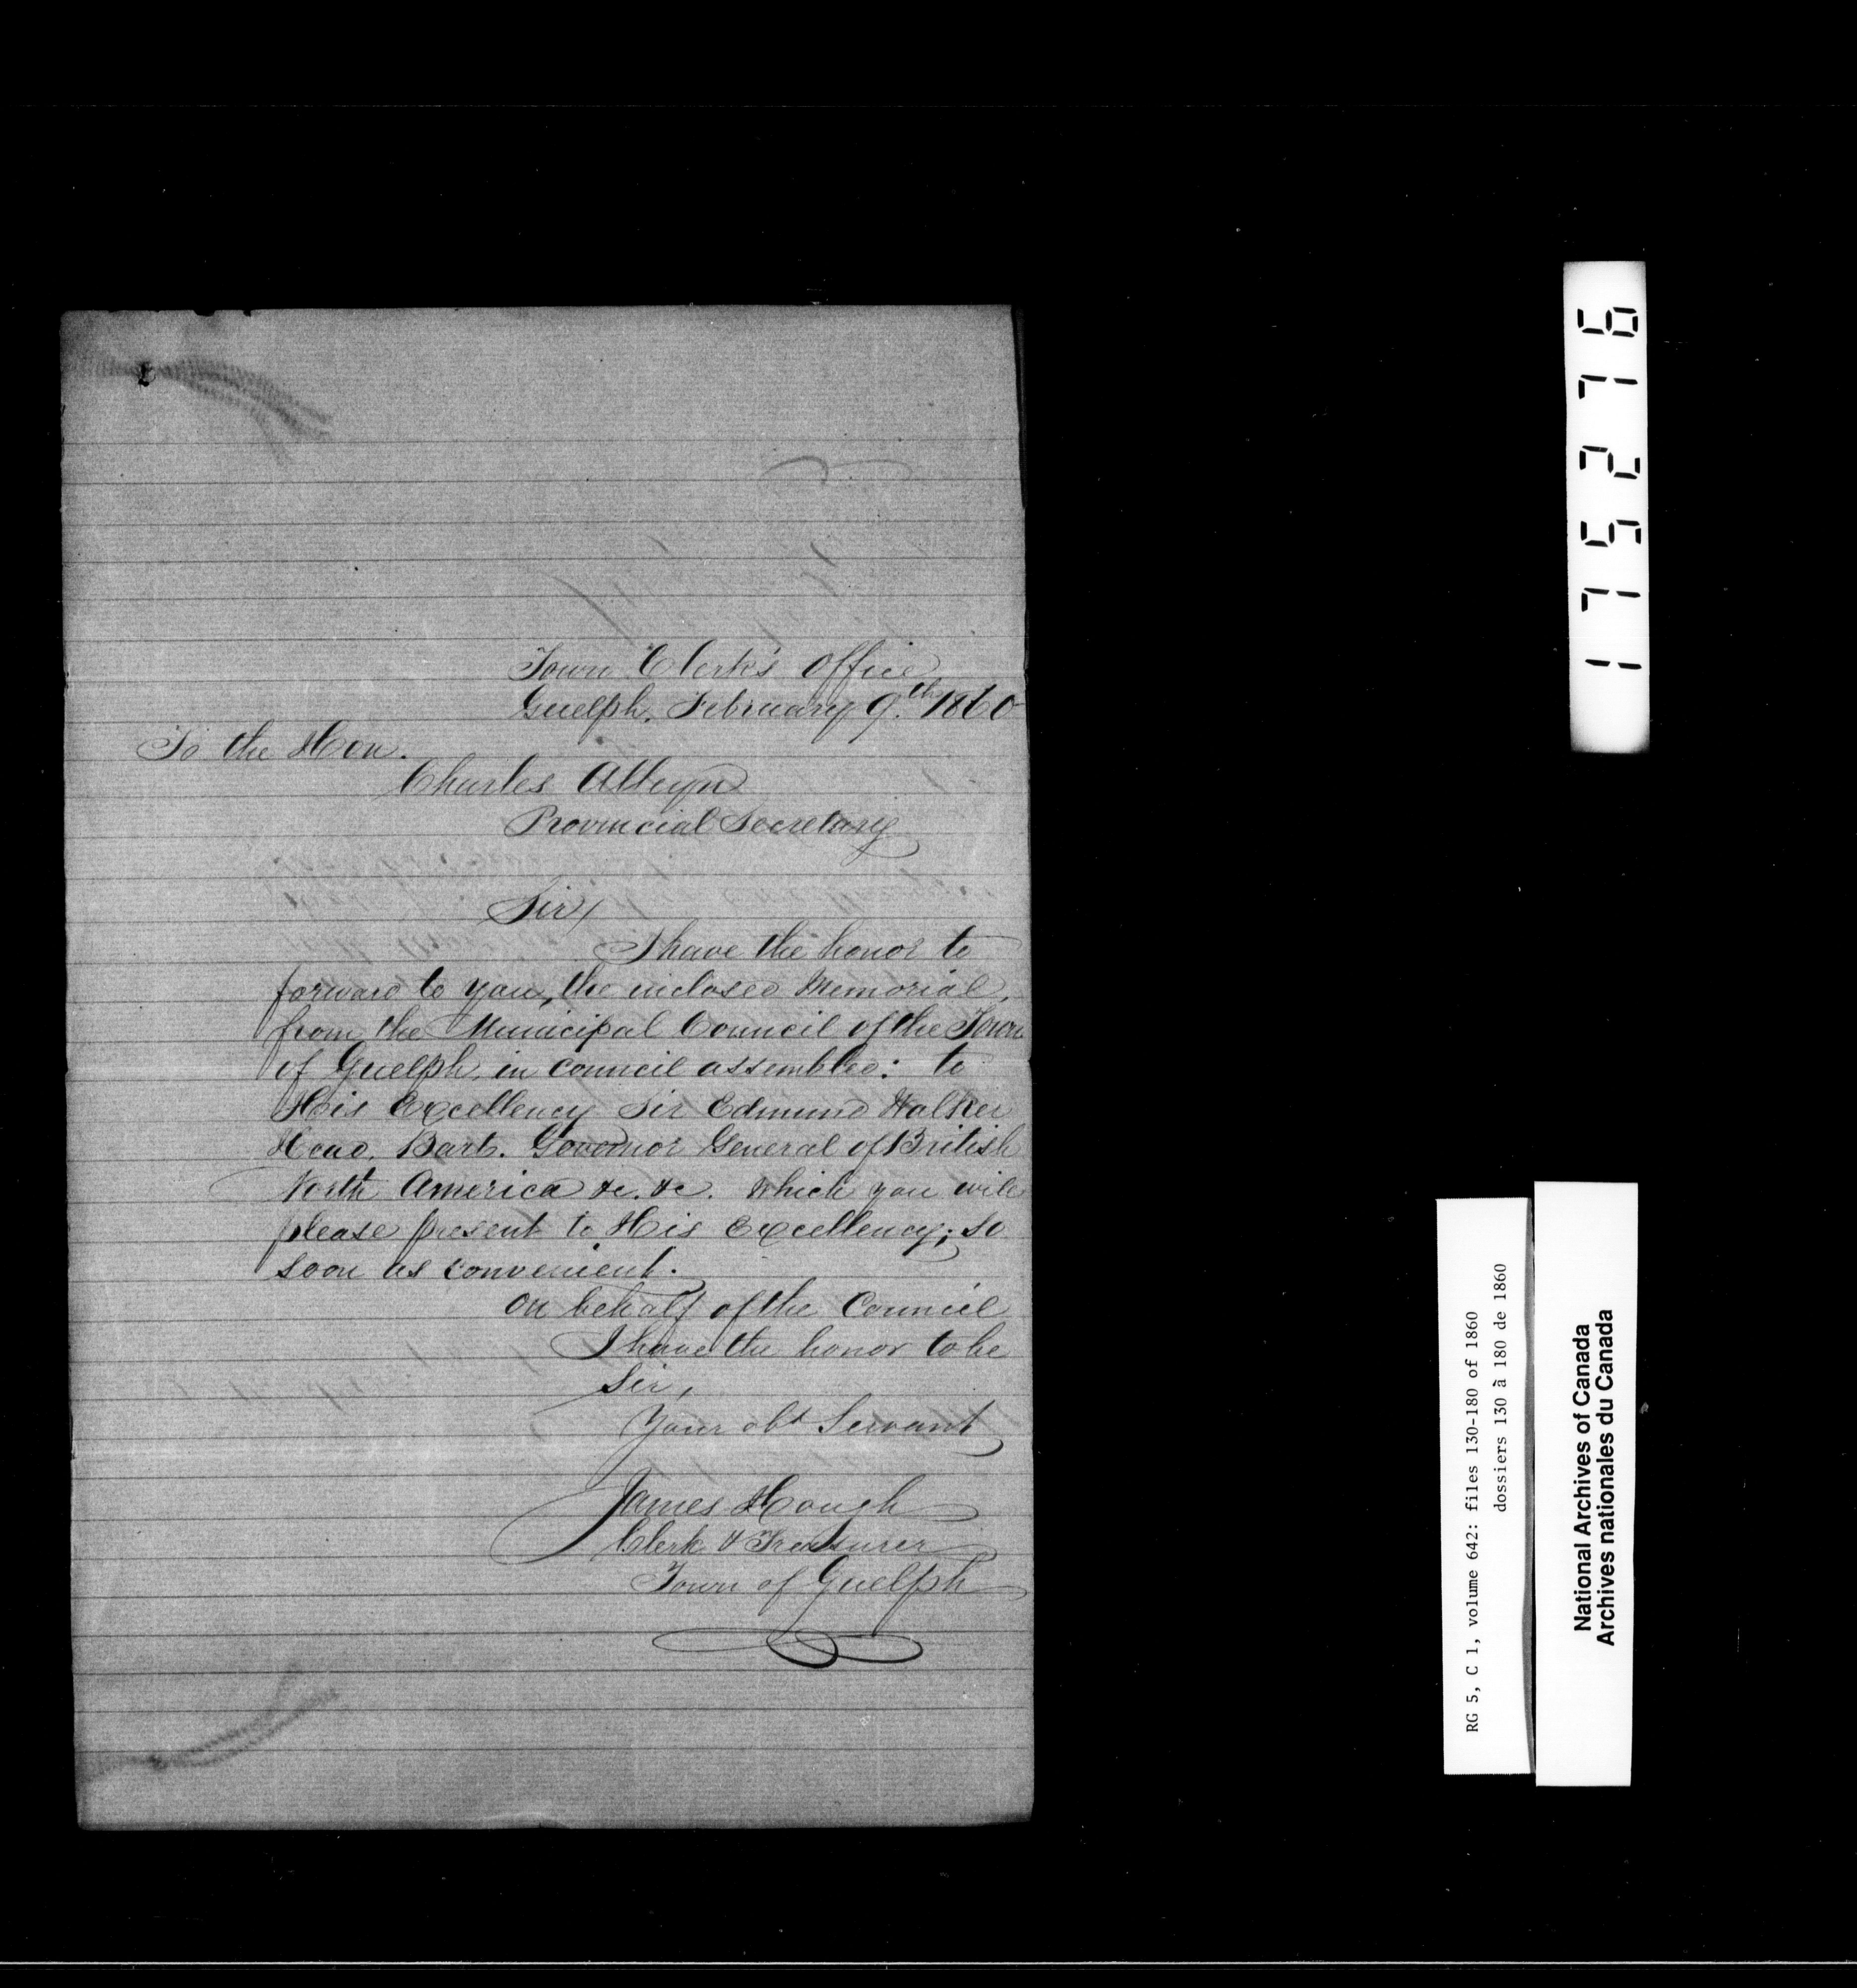 Town Clerk's Office
Guelph, February 9.th 1860
To the Hon.
Charles Alleyn
Provincial Secretary
Sir/
I have the honor to
forward to you, the inclosed Memorial,
from the Municipal Council of the Town
of Guelph, in council assembled: to
His Excellency Sir Edmund Walker
Head, Bart. Governor General of British
North America &c. &c. which you will
please present to His Excellency; so
soon as convenient.
On behalf of the Council
I have the honor to be
Sir,
Your obt Servant
James Hough
Clerk & Treasurer
Town of Guelph
175276
RG 5, C 1, volume 642: files 130-180 of 1860
dossiers 130 à 180 de 1860
National Archives of Canada
Archives nationales du Canada